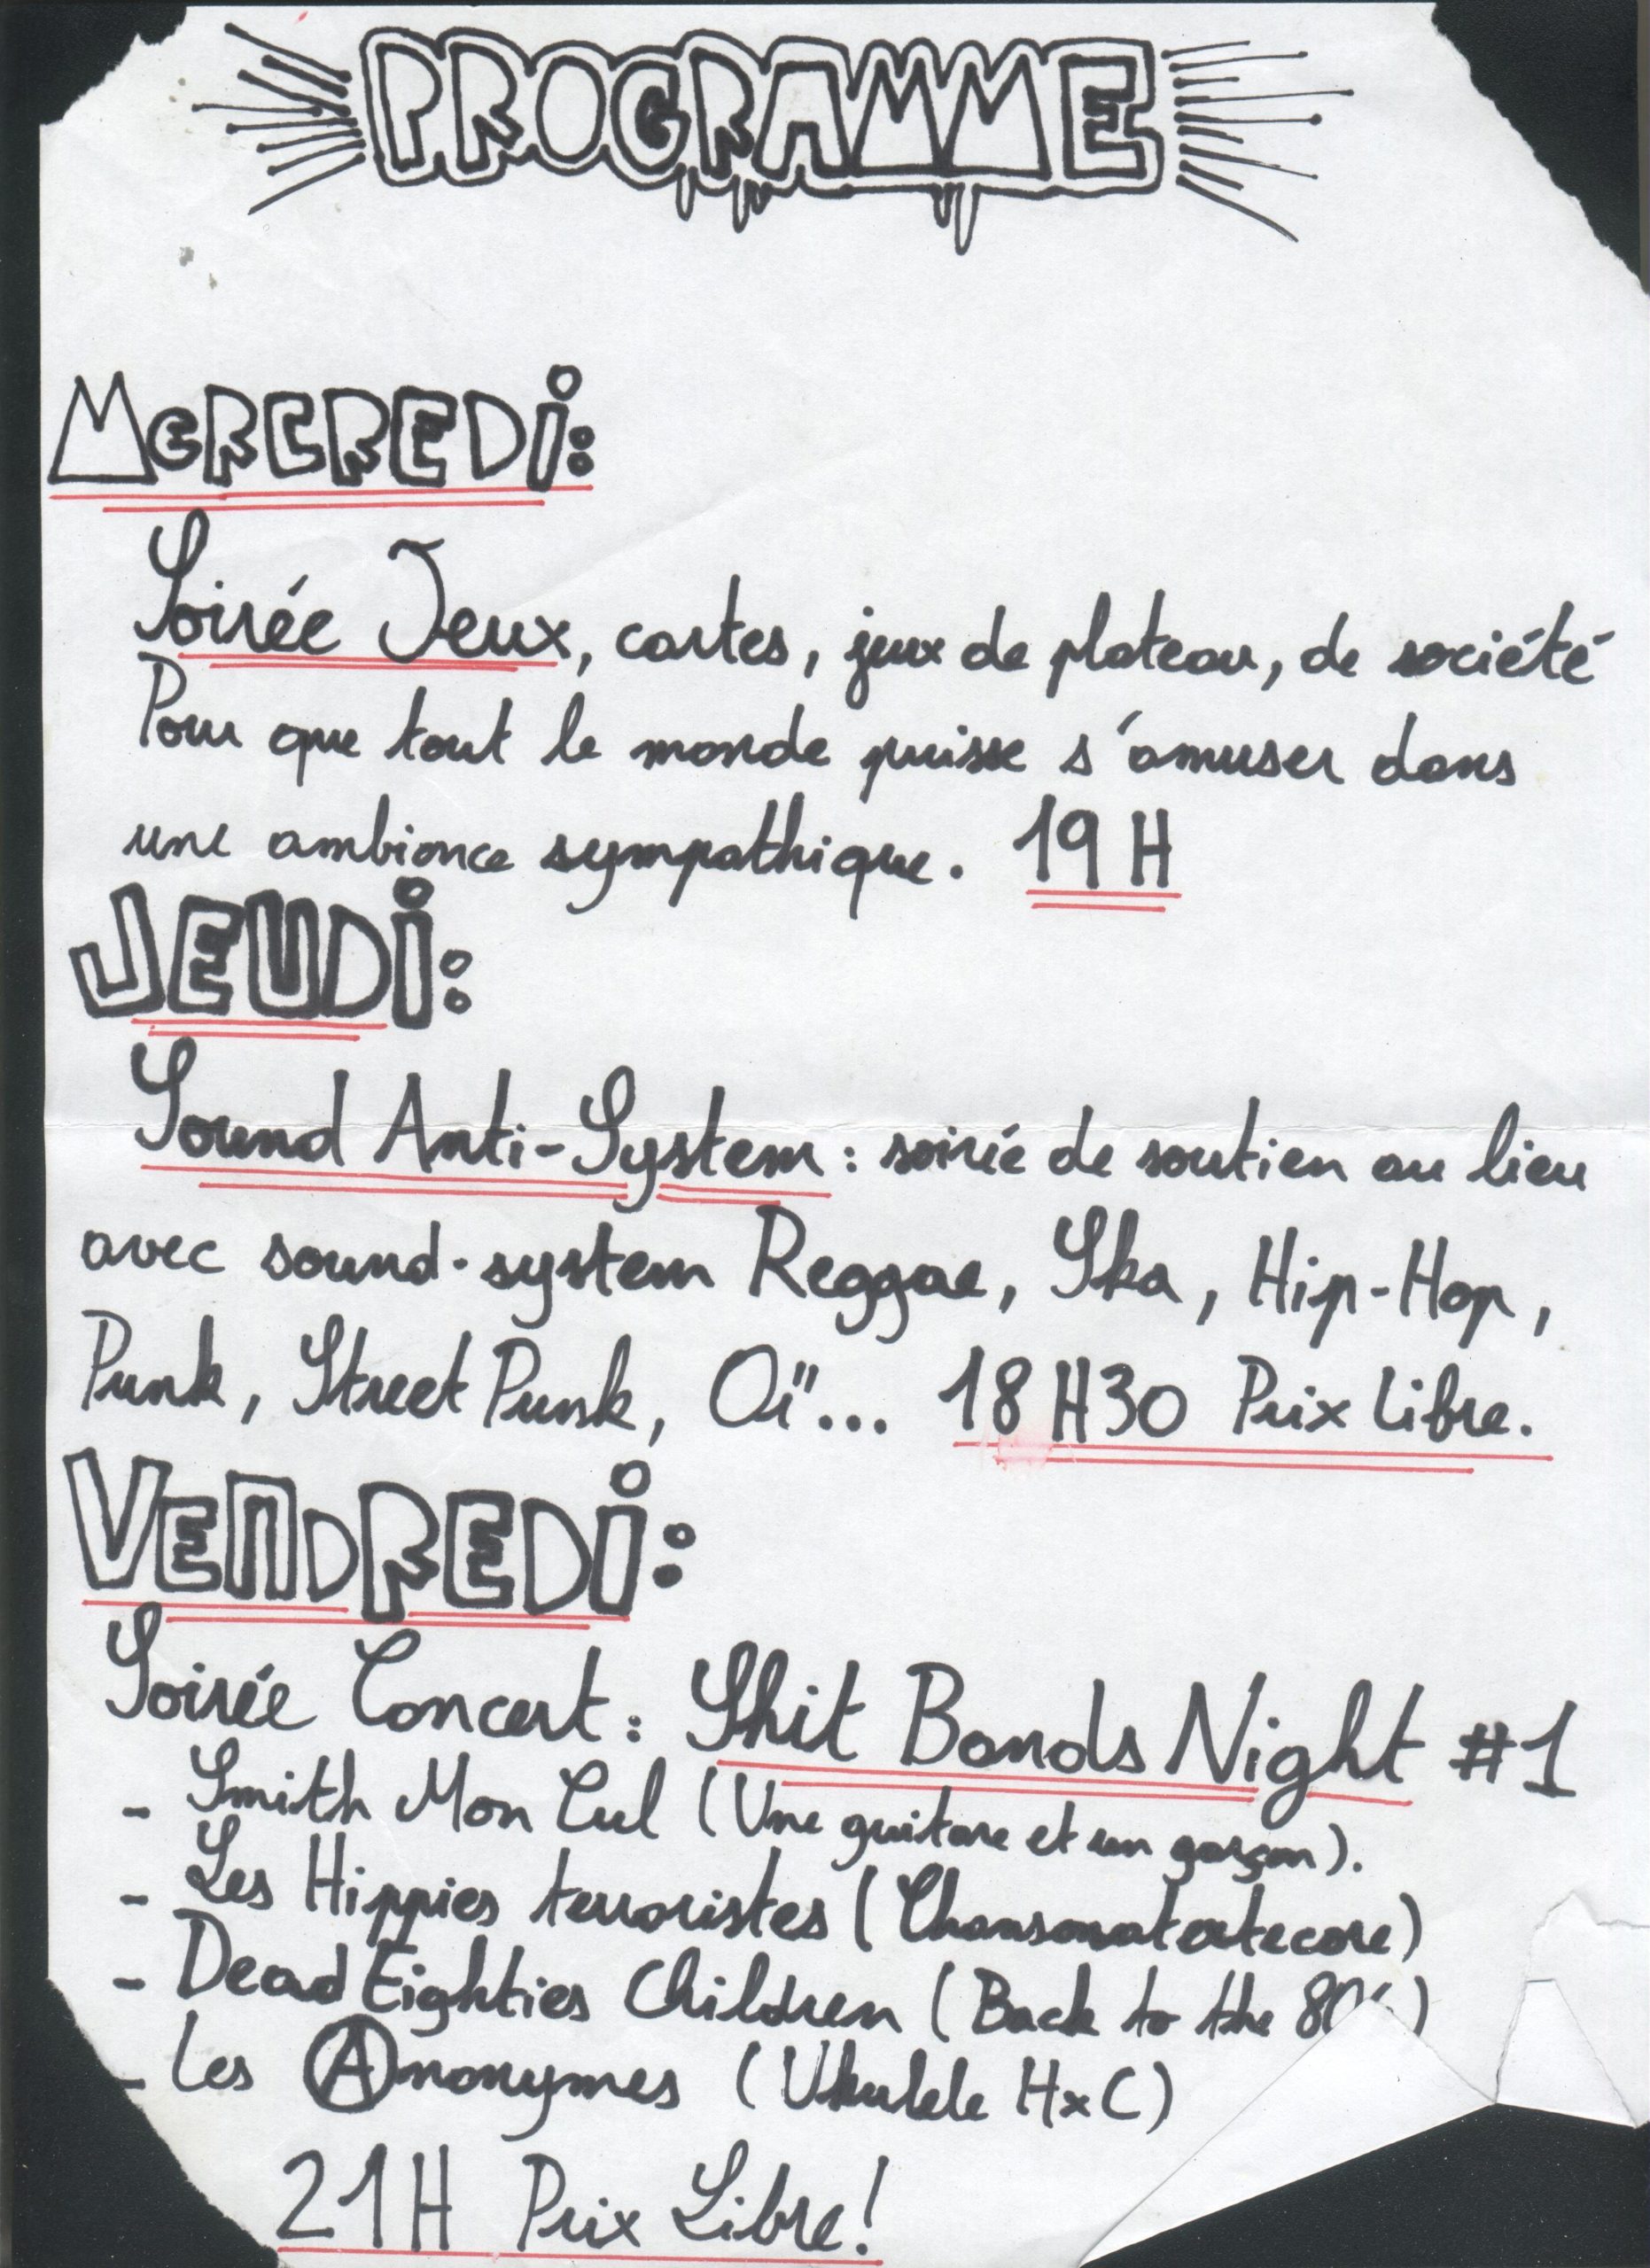 PROGRAMME
MeRCREDi:
Soirée Jeux, cartes, jeux de plateau, de société
Pour que tout le monde puisse s'amuser dans
une ambiance sympathique. 19 H
JEUDi:
Sound Anti-System : soirée de soutien au lieu
avec sound-system Reggae, Ska, Hip-Hop,
Punk, Street Punk, Oï... 18 H30 Prix Libre.
VENDREDi:
Soirée Concert : Shit Bands Night #1
- Smith Mon Cul (Une guitare et un garçon).
- Les Hippies terroristes (Chansonatextecore)
- Dead Eighties Children (Back to the 80's)
- Les Ⓐnonymes (Ukulele HxC)
21H Prix Libre!